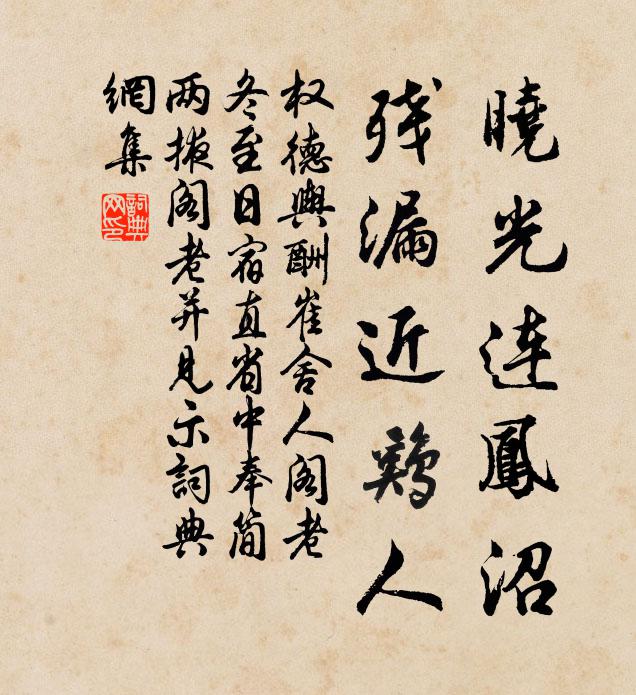 曉光連鳳沼
残漏近鷄人
权德輿酬崔舍人阁老
冬至日宿直省中奉简
两掖阁老并見示詞典
網集
詞典網印